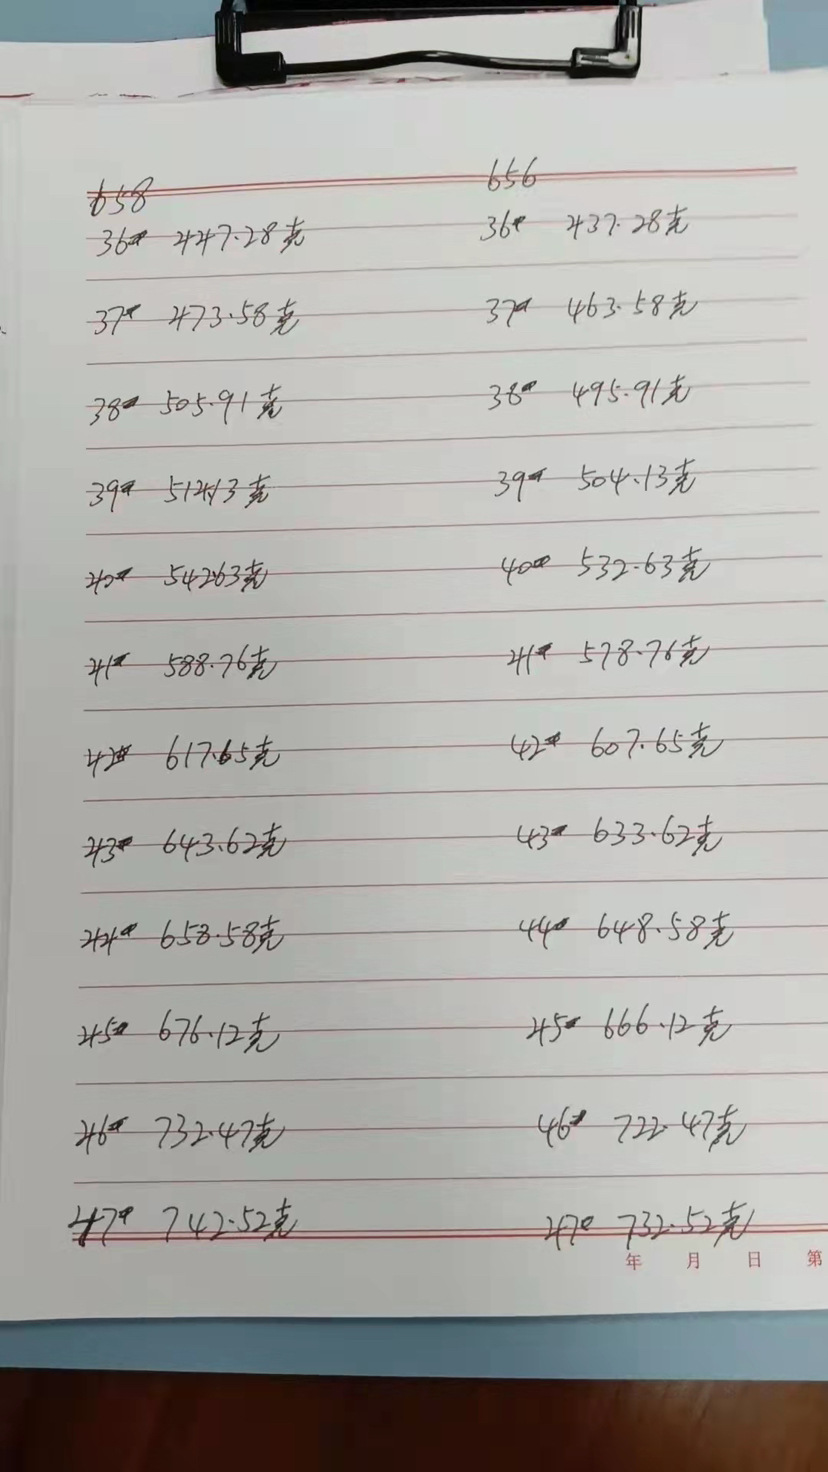 658 656
36# 447.28克 36# 437.28克
37# 473.58克 37# 463.58克
38# 505.91克 38# 495.91克
39# 514.13克 39# 504.13克
40# 542.63克 40# 532.63克
41# 588.76克 41# 578.76克
42# 617.65克 42# 607.65克
43# 643.62克 43# 633.62克
44# 658.58克 44# 648.58克
45# 676.12克 45# 666.12克
46# 732.47克 46# 722.47克
47# 742.52克 47# 732.52克
年 月 日 第